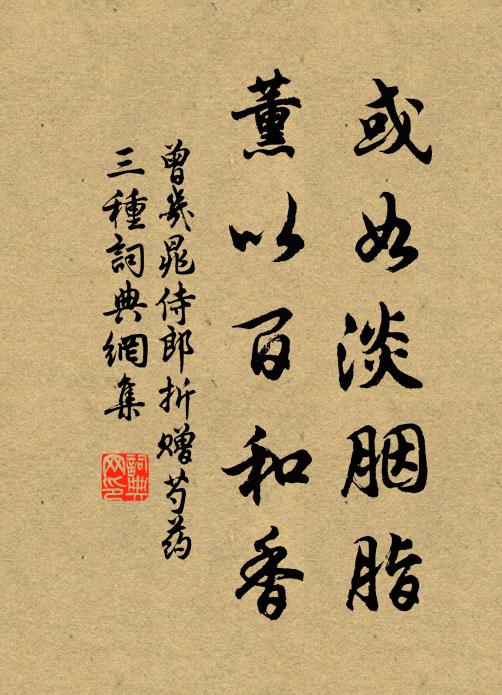 或如淡胭脂
薰以百和香
曾幾晁侍郎折贈芍药
三種詞典網集
詞典网印